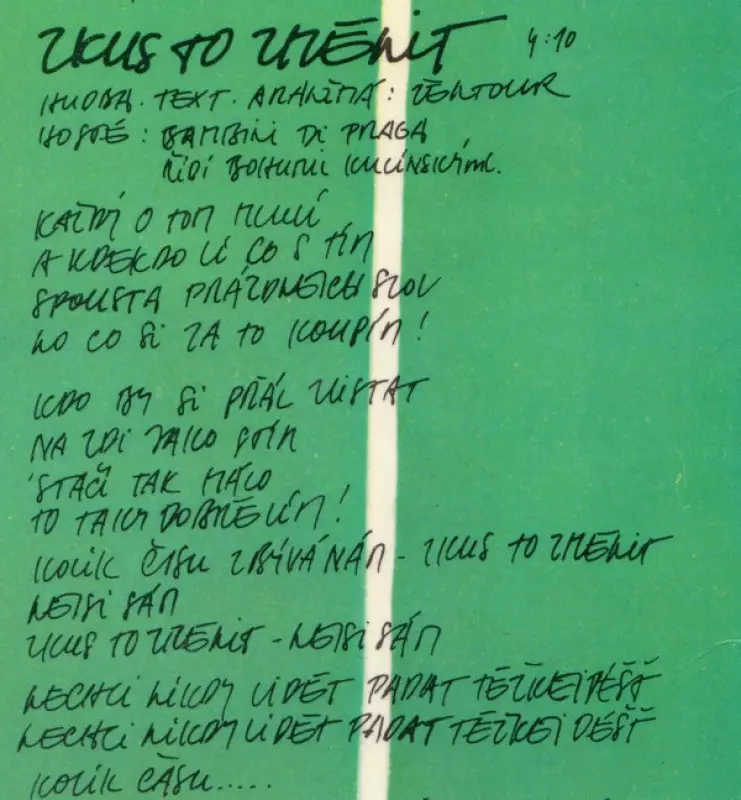 ZKUS TO ZMĚNIT 4:10
HUDBA. TEXT. ARANŽMÁ: VĚNTOUR
HOSTÉ: BAMBINI DI PRAGA
ŘÍDÍ BOHUMIL KULÍNSKÝ ML.
KAŽDÝ O TOM MLUVÍ
A KDEKDO VÍ CO S TÍM
SPOUSTA PRÁZDNEJCH SLOV
NO CO SI ZA TO KOUPÍM!
KDO BY SI PŘÁL ZŮSTAT
NA ZDI JAKO STÍN
STAČÍ TAK MÁLO
TO TAKY DOBŘE VÍM!
KOLIK ČASU ZBÝVÁ NÁM - ZKUS TO ZMĚNIT
NEJSI SÁM
ZKUS TO ZMĚNIT - NEJSI SÁM
NECHCI NIKDY VIDĚT PADAT TĚŽKEJ DÉŠŤ
NECHCI NIKDY VIDĚT PADAT TĚŽKEJ DÉŠŤ
KOLIK ČASU.....